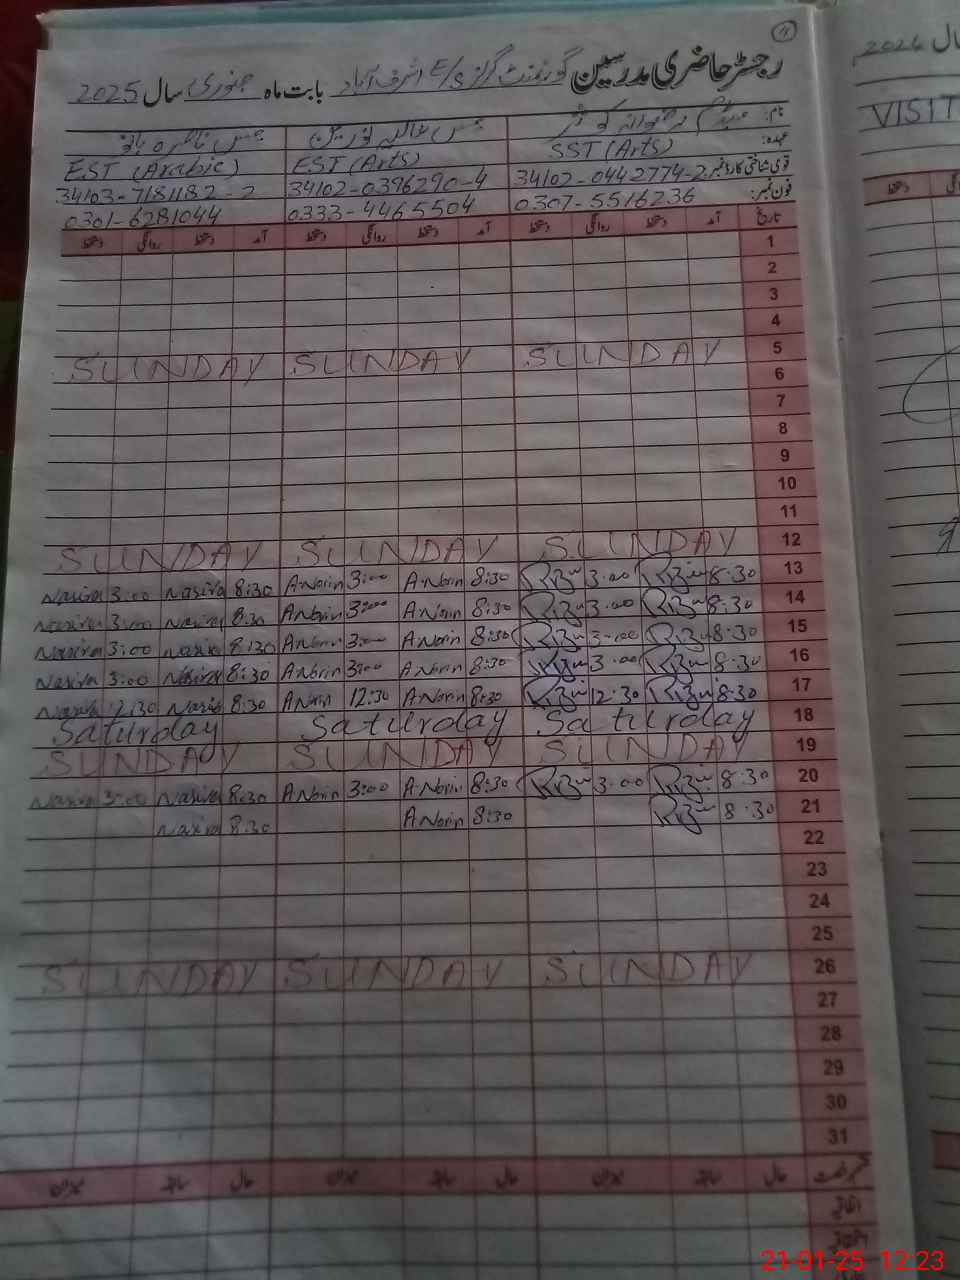 11
رجسٹر حاضری مدرسین گورنمنٹ گرلز E/S اشرف آباد بابت ماہ جنوری سال 2025
نام:
عہدہ: SST (Arts) EST (Arts) EST (Arabic)
قومی شناختی کارڈ نمبر: 34102-0442774-2 34102-0396290-4 34103-7181182-2
فون نمبر: 0307-5516236 0333-4465504 0301-6281044
تاریخ آمد دستخط روانگی دستخط آمد دستخط روانگی دستخط آمد دستخط روانگی دستخط
1
2
3
4
SUNDAY SUNDAY SUNDAY 5
6
7
8
9
10
11
SUNDAY SUNDAY SUNDAY 12
Nasira 3:00 Nasira 8:30 A Norin 3:00 A Norin 8:30 3:00 8:30 13
Nasira 3:00 Nasira 8:30 A Norin 3:00 A Norin 8:30 3:00 8:30 14
Nasira 3:00 Nasira 8:30 A Norin 3:00 A Norin 8:30 3:00 8:30 15
Nasira 3:00 Nasira 8:30 A Norin 3:00 A Norin 8:30 3:00 8:30 16
Nasira 12:30 Nasira 8:30 A Norin 12:30 A Norin 8:30 12:30 8:30 17
Saturday Saturday Saturday 18
SUNDAY SUNDAY SUNDAY 19
Nasira 3:00 Nasira 8:30 A Norin 3:00 A Norin 8:30 3:00 8:30 20
Nasira 8:30 A Norin 8:30 8:30 21
22
23
24
25
SUNDAY SUNDAY SUNDAY 26
27
28
29
30
31
حال سابقہ میزان حال سابقہ میزان حال سابقہ میزان
سال 2026
VISIT
21-01-25 12:23